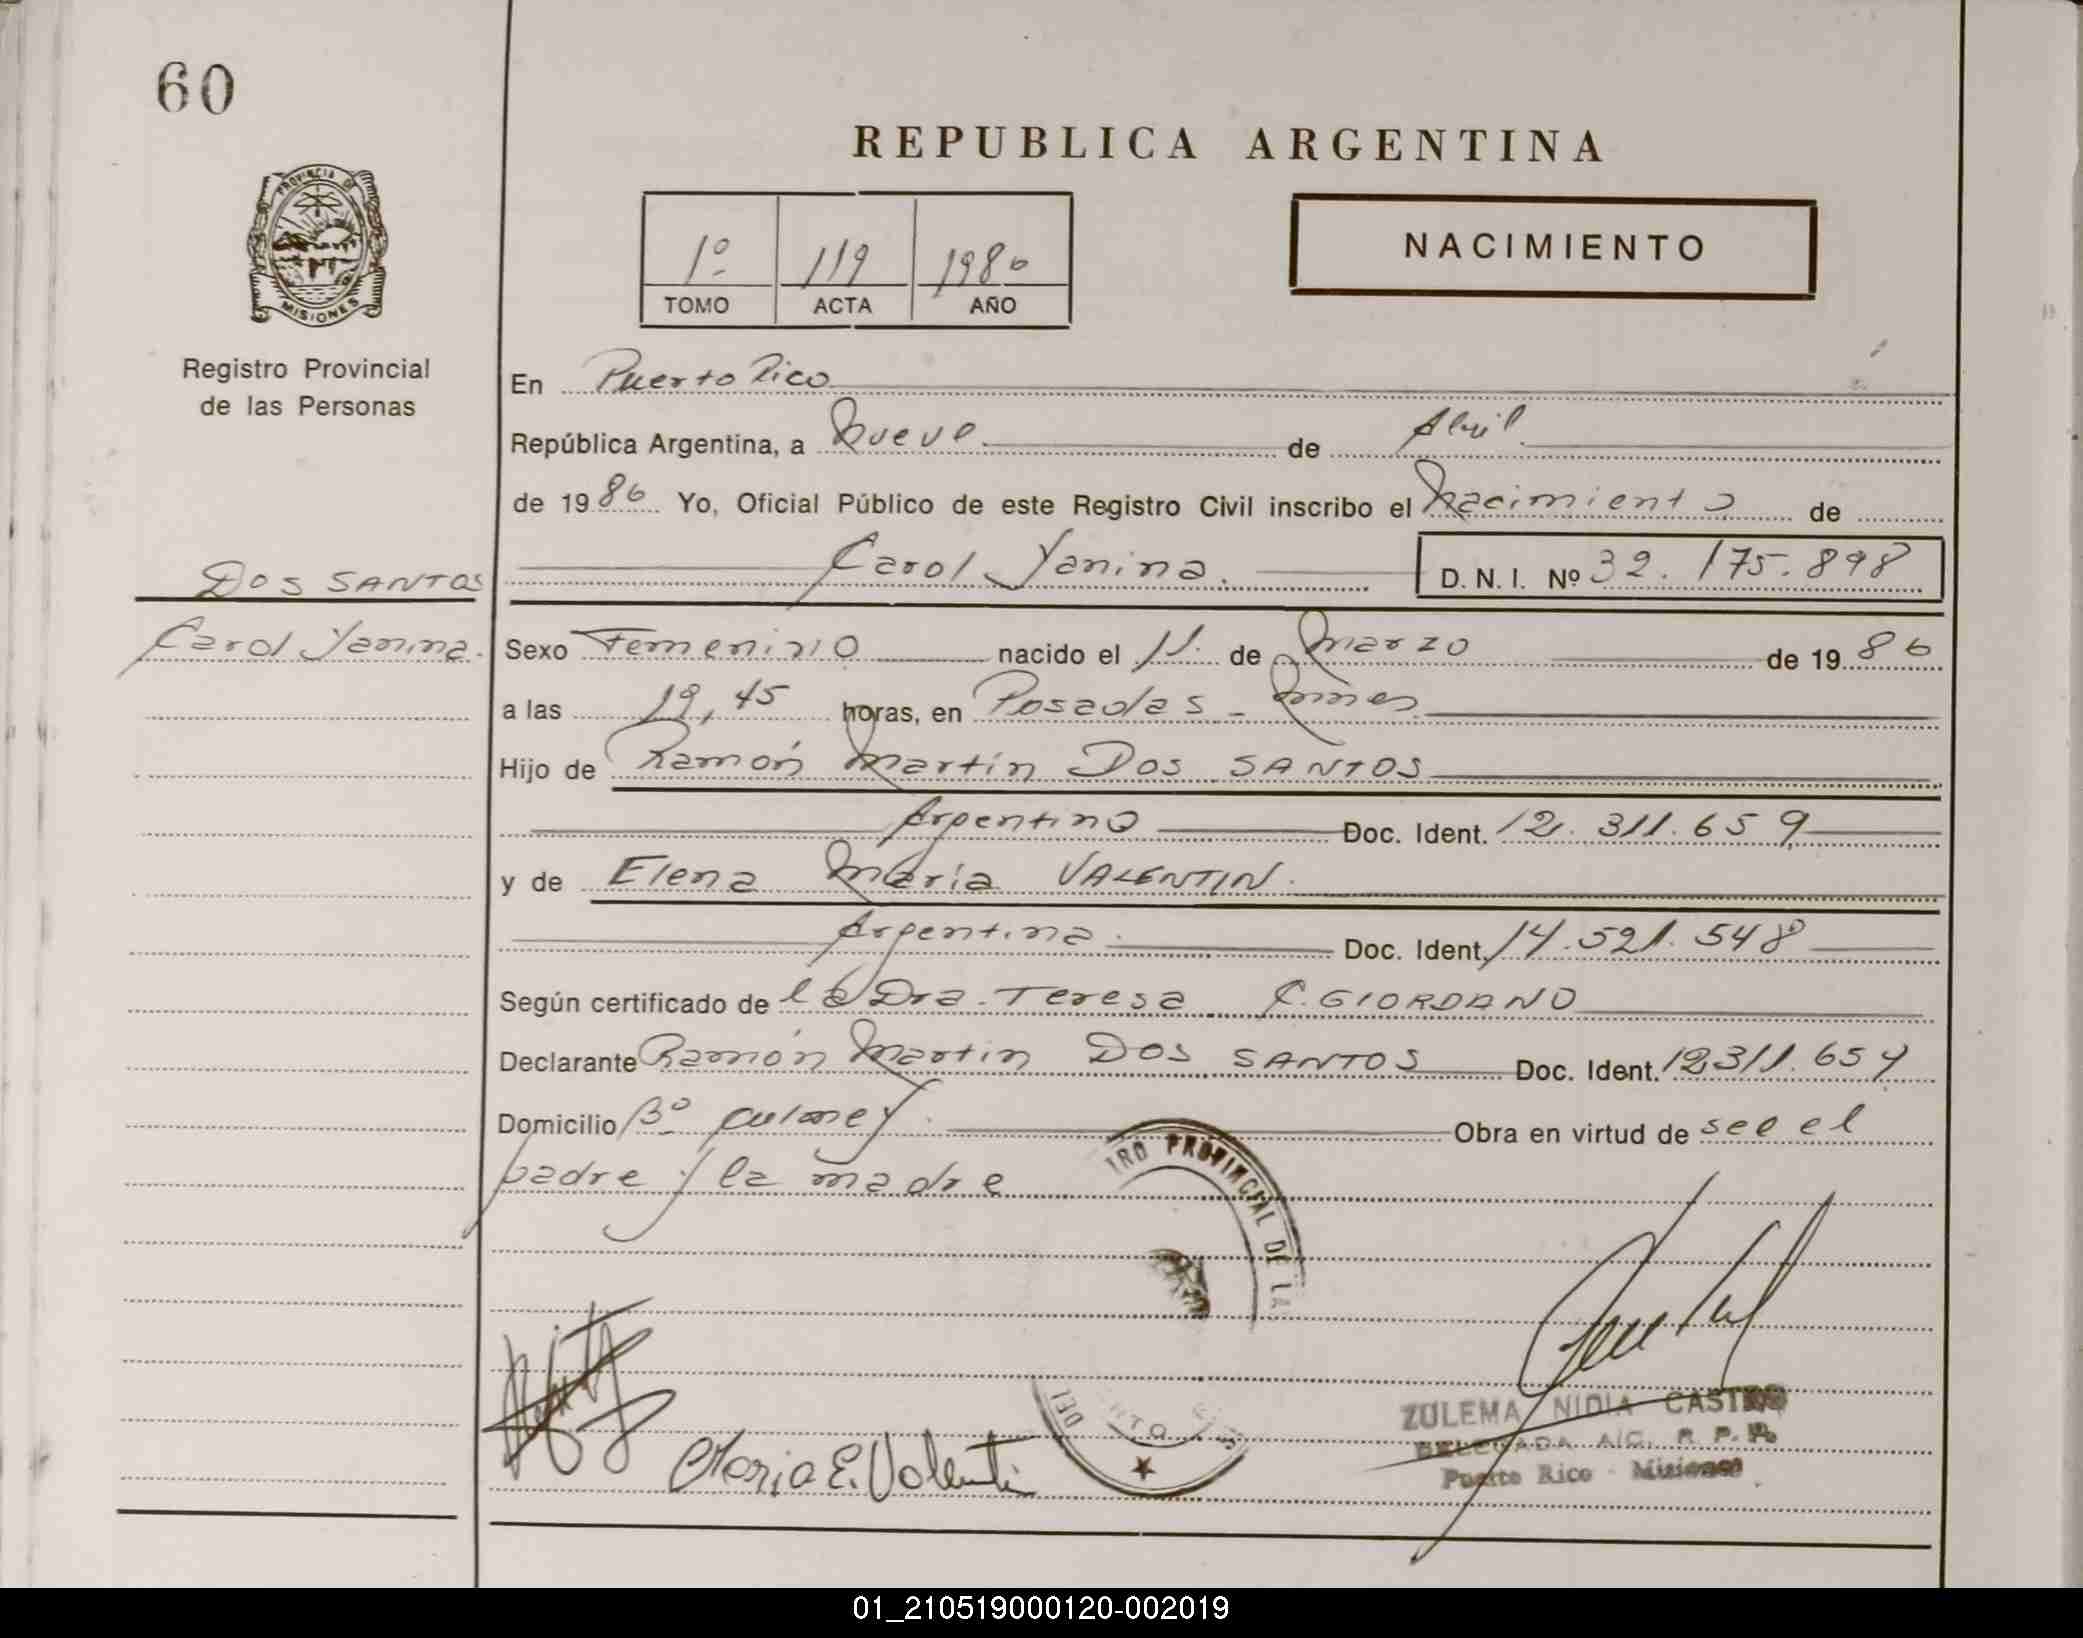 60
REPUBLICA ARGENTINA
PROVINCIA DE
MISIONES
Registro Provincial
de las Personas
1º 119 1986
TOMO ACTA AÑO
NACIMIENTO
En Puerto Rico
República Argentina, a Nueve de Abril
de 1986 Yo, Oficial Público de este Registro Civil inscribo el Nacimiento de
Carol Yanina. D. N. I. Nº 32.175.898
DOS SANTOS
Carol Yanina.
Sexo Femenino nacido el 11 de Marzo de 1986
a las 19,45 horas, en Posadas - Mnes.
Hijo de Ramón Martín DOS SANTOS
Argentino Doc. Ident. 12.311.659
y de Elena María VALENTIN.
Argentina. Doc. Ident. 14.521.548
Según certificado de la Dra. Teresa C. GIORDANO
Declarante Ramón Martin DOS SANTOS Doc. Ident. 12311.659
Domicilio Bº Obra en virtud de ser el
padre y la madre
TRO PROVINCIAL DE LA
Maria E. Valentin
ZULEMA NIDIA CASTRO
DELEGADA A/C. R. P. P.
Puerto Rico - Misiones
01_210519000120-002019